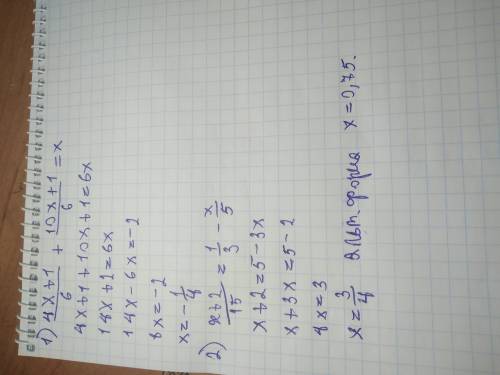 1) (4x+1)/6 + (10x+1)/6 = x
4x+1+10x+1=6x
14x+2=6x
14x-6x=-2
8x=-2
x=-1/4
2) (x+2)/15 = 1/3 - x/5
x+2=5-3x
x+3x=5-2
4x=3
x=3/4 альт. форма x=0,75.